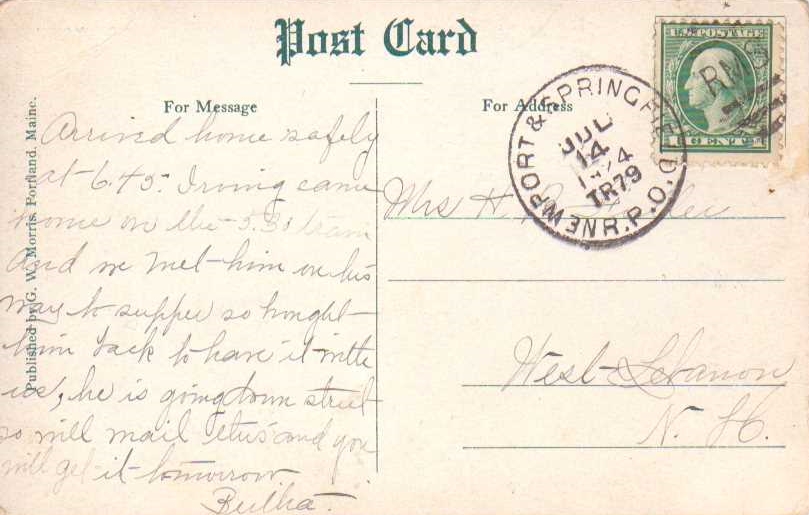 Post Card
For Message
For Address
Published by G. W. Morris, Portland, Maine.
U.S. POSTAGE
RMS
NEWPORT & SPRINGFIELD R.P.O.
JUL
14
TR79
Arrived home safely
at 6.45. Irving came
home on the 5.30 train
And we met him on his
way to supper so
him back to have it with
us, he is going down street
so will mail and you
will get it tomorrow
Beulha.
Mrs H.
West Lebanon
N. H.